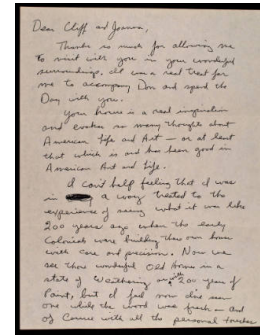 Dear Cliff and Joanna,
Thanks so much for allowing me
to visit with you in your wonderful
surroundings, it was a real treat for
me to accompany Don and spend the
Day with you.
Your house is a real inspiration
and evokes so many thoughts about
American life and Art — or at least
that which is and has been good in
American Art and life.
I can't help feeling that I was
in a way treated to the
experience of seeing what it was like
200 years ago when the early
Colonists were building their own homes
with care and precision. Now we
see these wonderful Old homes in a
state of Weathering with 200 years of
Paint, but I feel now I've seen
one while the wood was fresh — and
of Course with all the personal touches